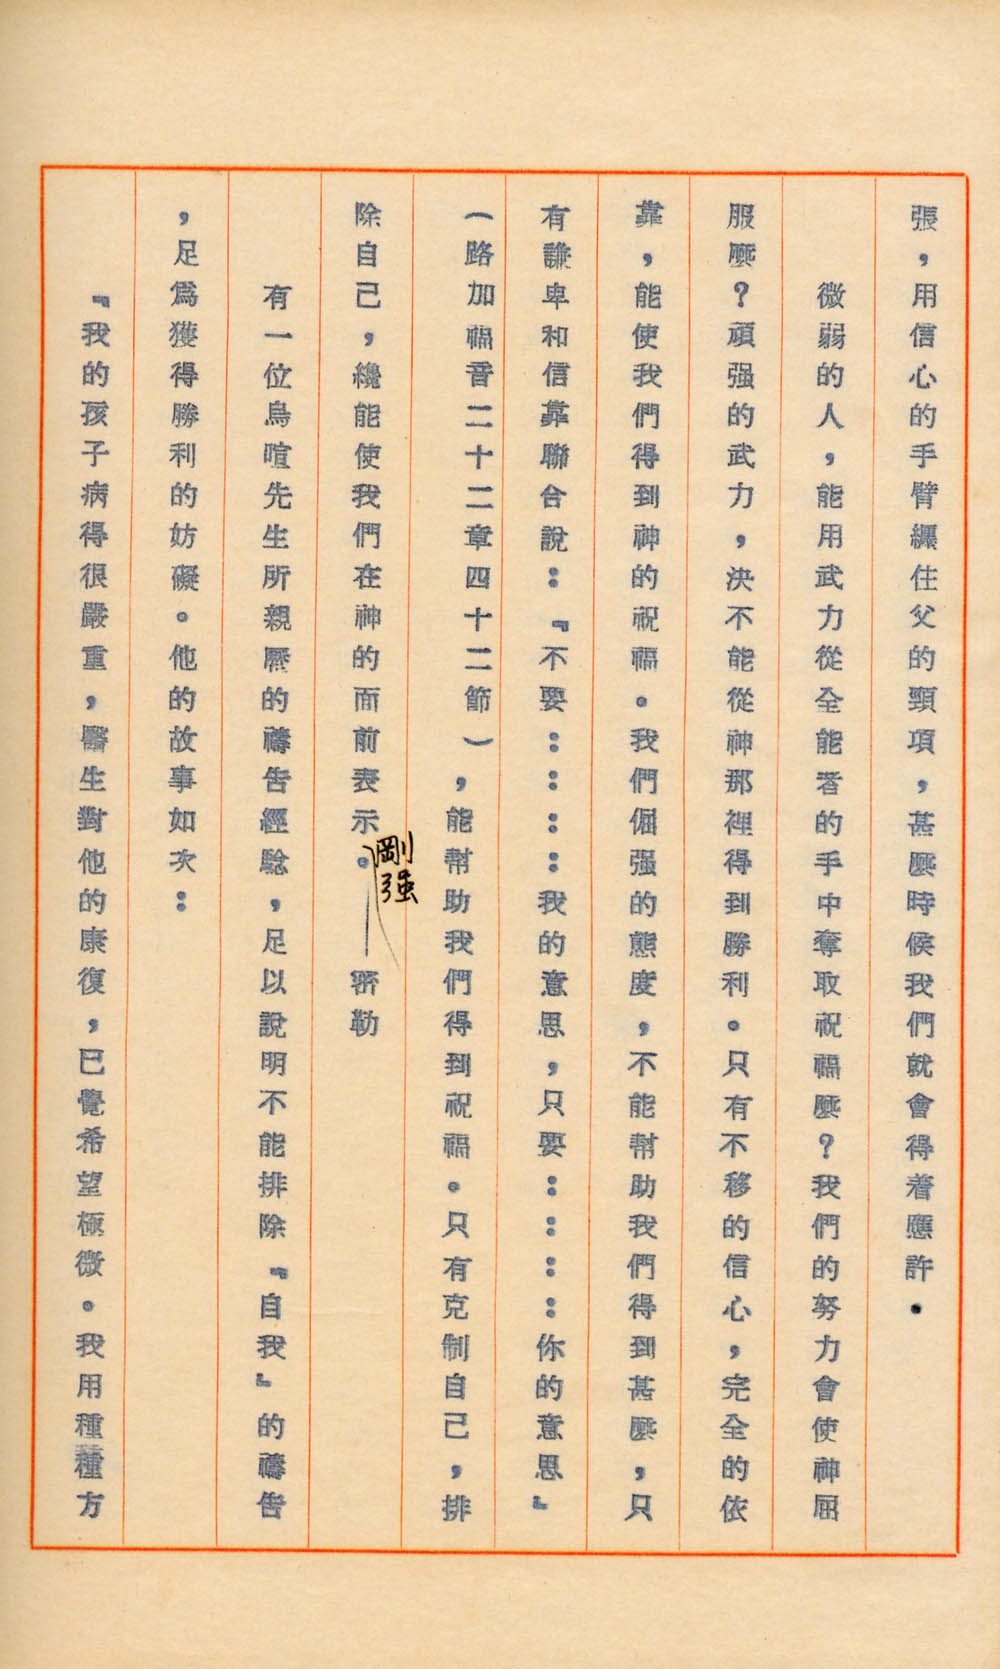 張，用信心的手臂纏住父的頸項，甚麼時候我們就會得着應許．
微弱的人，能用武力從全能者的手中奪取祝福麼？我們的努力會使神屈
服麼？頑强的武力，決不能從神那裡得到勝利。只有不移的信心，完全的依
靠，能使我們得到神的祝福。我們倔强的態度，不能幫助我們得到甚麼，只
有謙卑和信靠聯合說：『不要：：：：我的意思，只要：：：：你的意思』
（路加福音二十二章四十二節），能幫助我們得到祝福。只有克制自己，排
除自己，纔能使我們在神的面前表示剛强。——密勒
有一位烏喧先生所親歷的禱告經驗，足以說明不能排除『自我』的禱告
，足爲獲得勝利的妨礙。他的故事如次：
『我的孩子病得很嚴重，醫生對他的康復，已覺希望極微。我用種種方